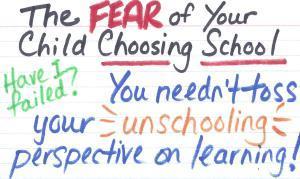 The FEAR of Your
Child Choosing School
Have I
failed?
You needn't toss
your unschooling
perspective on learning!